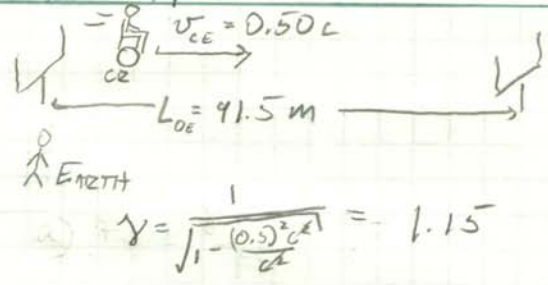 v_CE = 0.50c
CE
L_OE = 91.5 m
EARTH
γ = 1/√(1 - (0.5)²c²/c²) = 1.15